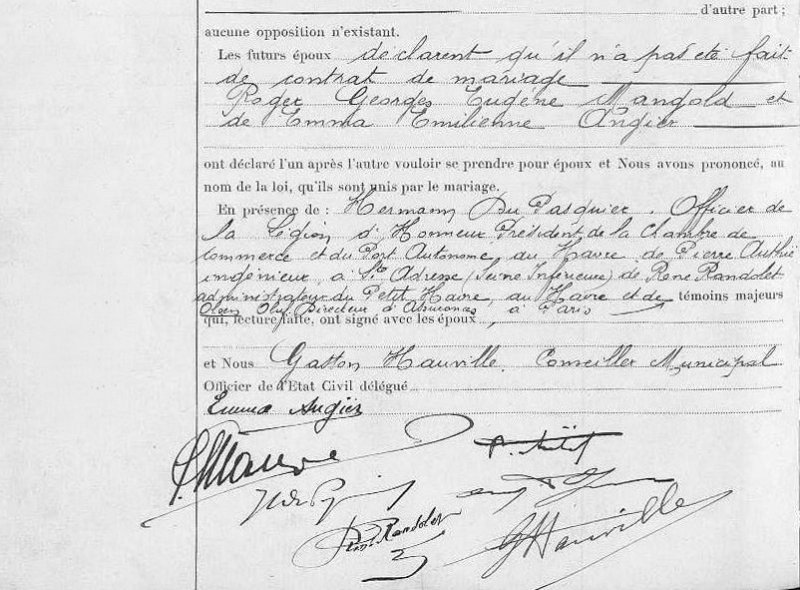 d'autre part ;
aucune opposition n'existant.
Les futurs époux déclarent qu'il n'a pas été fait
de contrat de mariage
Roger Georges Eugène Mangold et
de Emma Emilienne Angier
ont déclaré l'un après l'autre vouloir se prendre pour époux et Nous avons prononcé, au
nom de la loi, qu'ils sont unis par le mariage.
En présence de : Hermann Du Pasquier, Officier de
la Légion d'Honneur Président de la Chambre de
commerce et du Port Autonome, au Havre, de Pierre
ingénieur, à Ste Adresse (Seine Inférieure) de René Randolet
administrateur du Petit Havre, au Havre et de témoins majeurs
Directeur d'Assurances à Paris
qui, lecture faite, ont signé avec les époux
et Nous Gaston Hauville, Conseiller Municipal
Officier de l'Etat Civil délégué
Emma Angier
René Randolet
GHauville